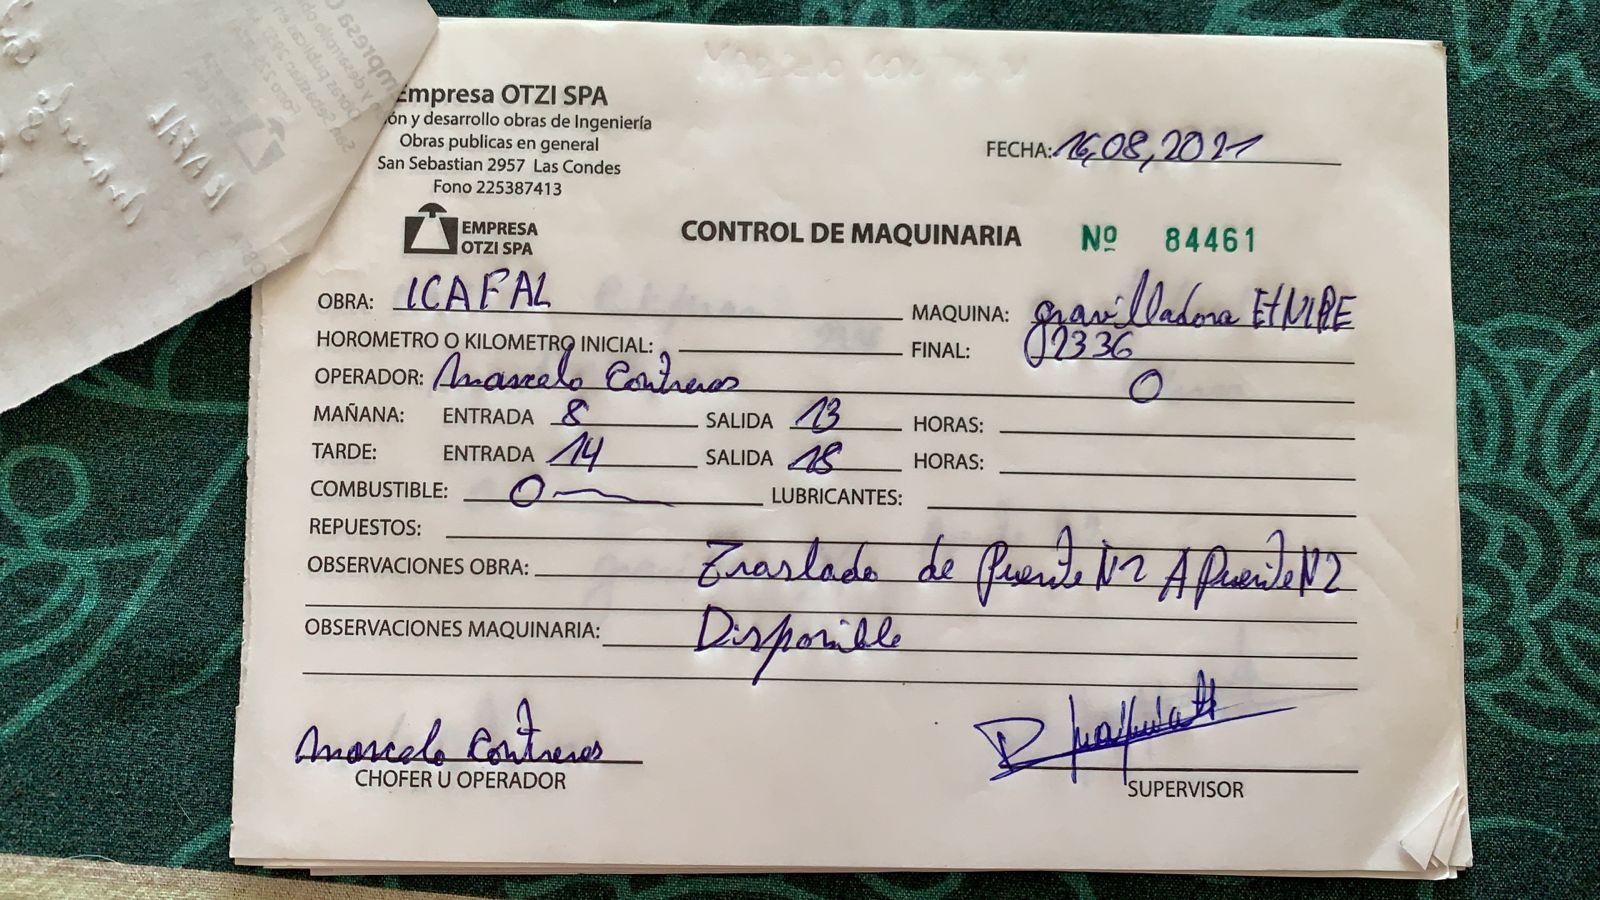 Empresa OTZI SPA
ón y desarrollo obras de Ingeniería
Obras publicas en general
San Sebastian 2957 Las Condes
Fono 225387413
FECHA: 16,08,2021
EMPRESA
OTZI SPA
CONTROL DE MAQUINARIA Nº 84461
OBRA: ICAFAL MAQUINA: gravilladora ETNYRE
HOROMETRO O KILOMETRO INICIAL: FINAL: 12336
OPERADOR: Marcelo Contreras 0
MAÑANA: ENTRADA 8 SALIDA 13 HORAS:
TARDE: ENTRADA 14 SALIDA 18 HORAS:
COMBUSTIBLE: 0 LUBRICANTES:
REPUESTOS:
OBSERVACIONES OBRA: Traslado de Puente N2 A Puente N2
OBSERVACIONES MAQUINARIA: Disponible
Marcelo Contreras
CHOFER U OPERADOR
SUPERVISOR